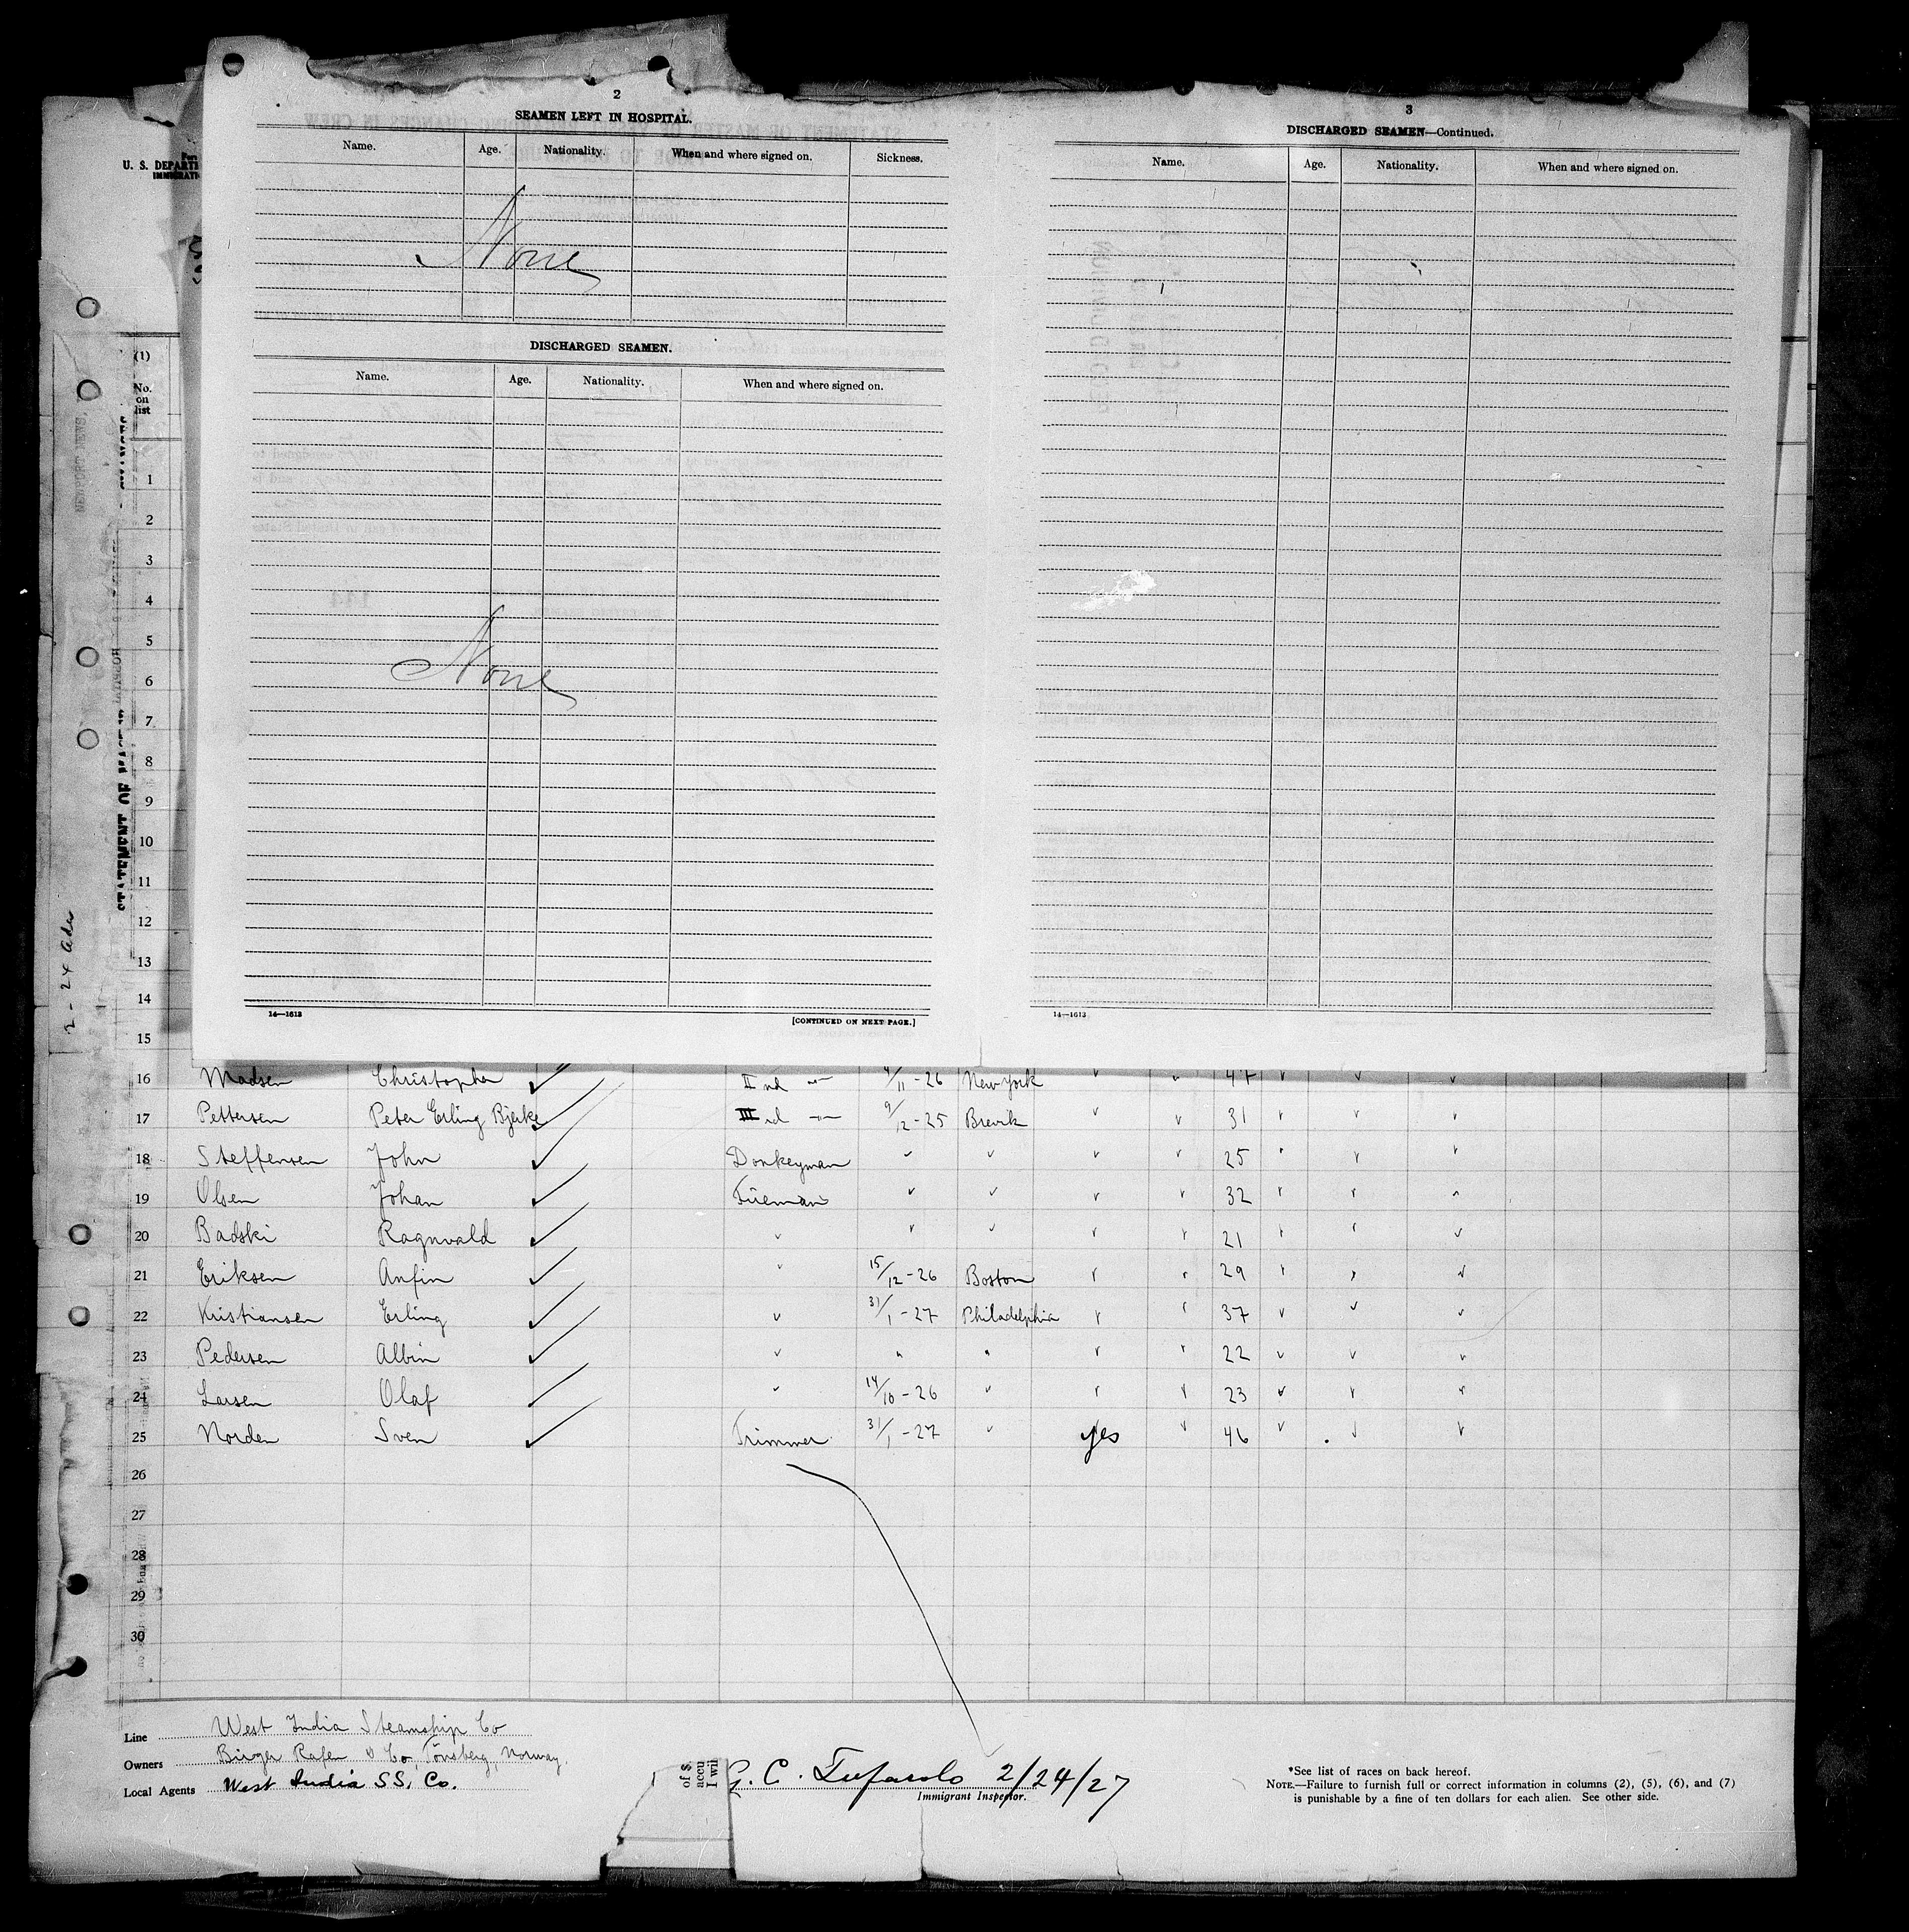 2
SEAMEN LEFT IN HOSPITAL.
Name. Age. Nationality. When and where signed on. Sickness.
None
DISCHARGED SEAMEN.
Name. Age. Nationality. When and where signed on.
None
14—1613
[CONTINUED ON NEXT PAGE.]
3
DISCHARGED SEAMEN—Continued.
Name. Age. Nationality. When and where signed on.
14—1613
U. S. DEPART
IMMIGRATI
(1)
No. on list
NEWPORT NEWS,
STATEMENT OF MASTER
2-24
1
2
3
4
5
6
7
8
9
10
11
12
13
14
15
16 Madsen Christopher ✓ II nd -"- 11-26 New York ✓ ✓ 47 ✓ ✓ ✓
17 Pettersen Peter Erling Bjerke ✓ III rd -"- 9/12-25 Brevik ✓ ✓ 31 ✓ ✓ ✓
18 Steffensen John ✓ Donkeyman ✓ ✓ ✓ ✓ 25 ✓ ✓ ✓
19 Olsen Johan ✓ Fireman ✓ ✓ ✓ ✓ 32 ✓ ✓ ✓
20 Badski Ragnvald ✓ ✓ ✓ ✓ ✓ ✓ 21 ✓ ✓ ✓
21 Eriksen Anfin ✓ ✓ 15/12-26 Boston ✓ ✓ 29 ✓ ✓ ✓
22 Kristiansen Erling ✓ ✓ 31/1-27 Philadelphia ✓ ✓ 37 ✓ ✓ ✓
23 Pedersen Albin ✓ ✓ " " ✓ ✓ 22 ✓ ✓ ✓
24 Larsen Olaf ✓ ✓ 14/10-26 ✓ ✓ ✓ 23 ✓ ✓ ✓
25 Norden Sven ✓ Trimmer 31/1-27 ✓ yes ✓ 46 ✓ ✓ ✓
26
27
28
29
30
Line West India Steamship Co
Owners Birger Rafen & Co, Tönsberg, Norway.
Local Agents West India SS. Co.
of S.
accu
I wil
G. C. Tufarolo 2/24/27
Immigrant Inspector.
*See list of races on back hereof.
NOTE.—Failure to furnish full or correct information in columns (2), (5), (6), and (7)
is punishable by a fine of ten dollars for each alien. See other side.